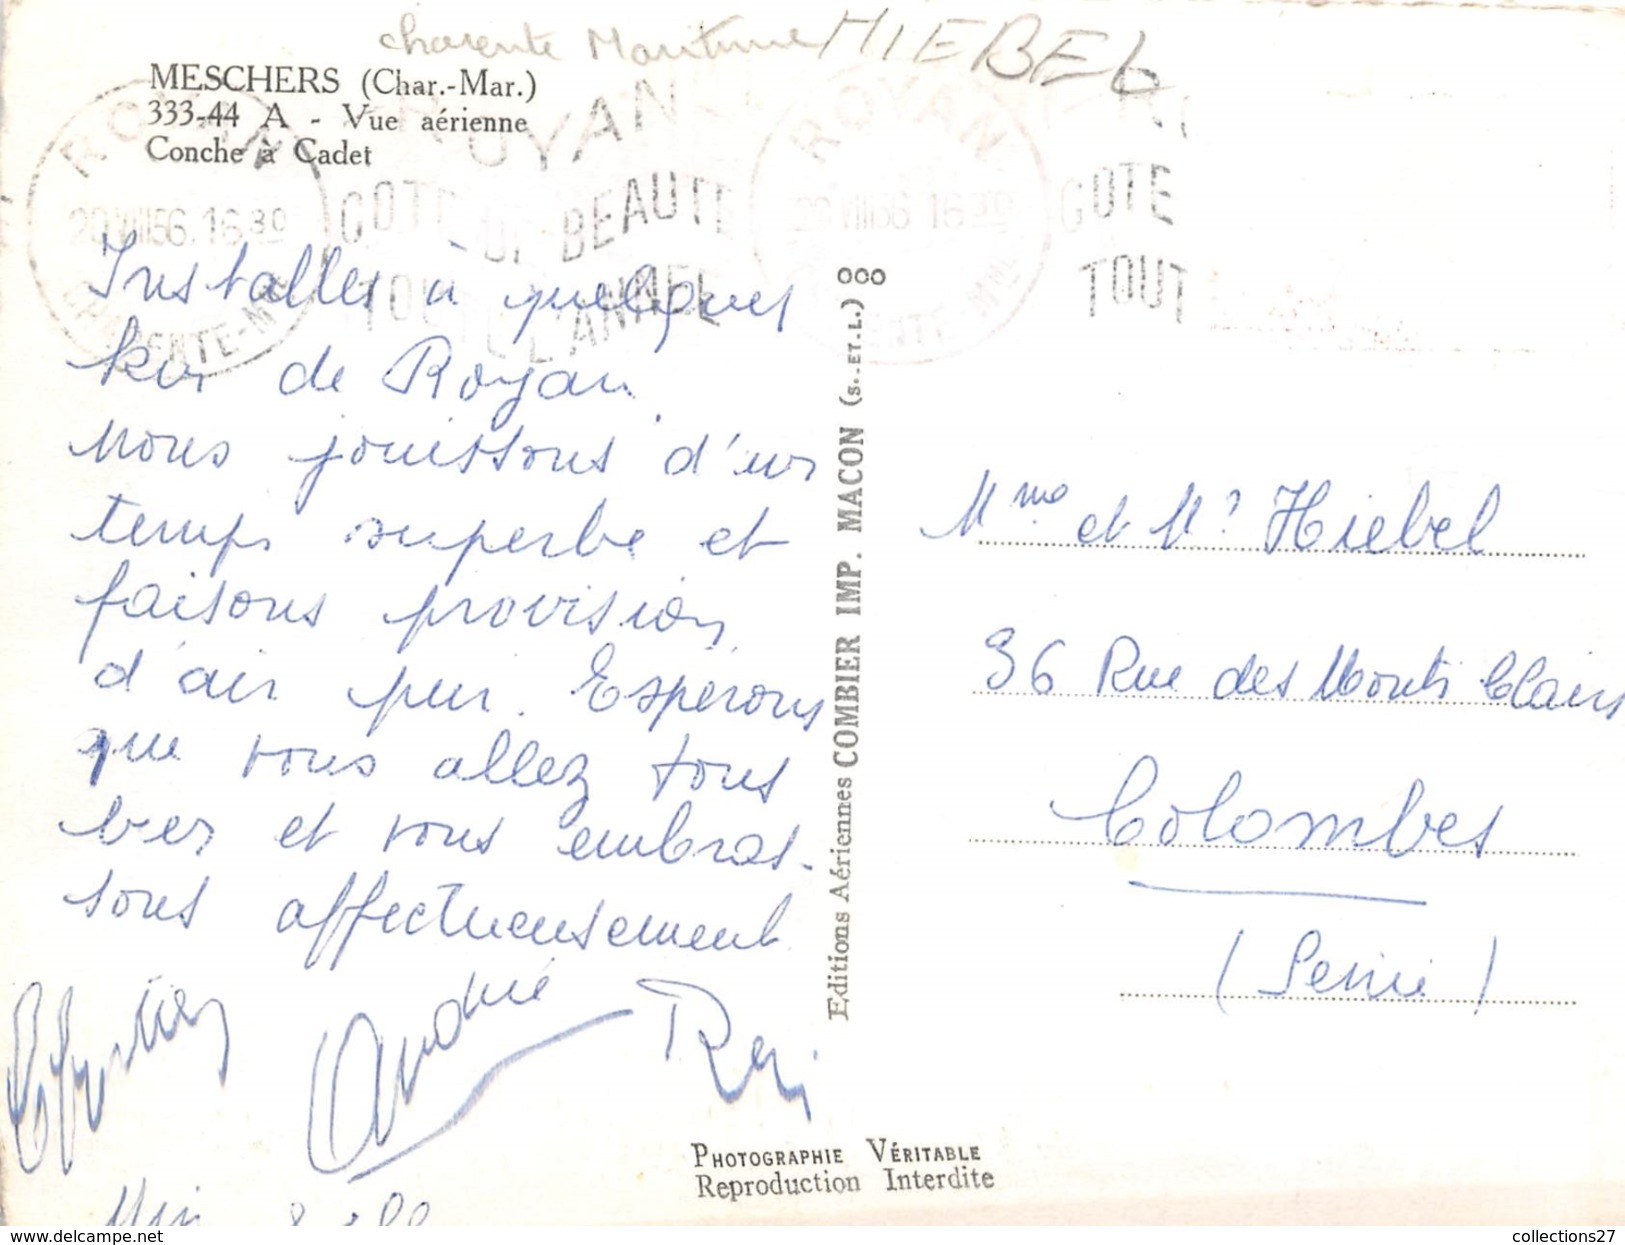 charente Maritime HIEBEL
MESCHERS (Char.-Mar.)
333-44 A - Vue aérienne
Conche à Cadet
ROYAN
20 VIII 56. 16 30
CHARENTE-MME
ROYAN
COTE DE BEAUTE
TOUTE L'ANNEE
ROYAN
20 VIII 56 16 30
COTE
TOUT
Installés à quelques
km de Royan
nous jouissons d'un
temps superbe et
faisons provision
d'air pur. Espérons
que vous allez tous
bien et vous embras-
sons affectueusement
André
Mme et Mr Hiebel
36 Rue des Monts Clairs
Colombes
(Seine)
Editions Aériennes COMBIER IMP. MACON (S.-ET-L.) ooo
PHOTOGRAPHIE VÉRITABLE
Reproduction Interdite
collections27